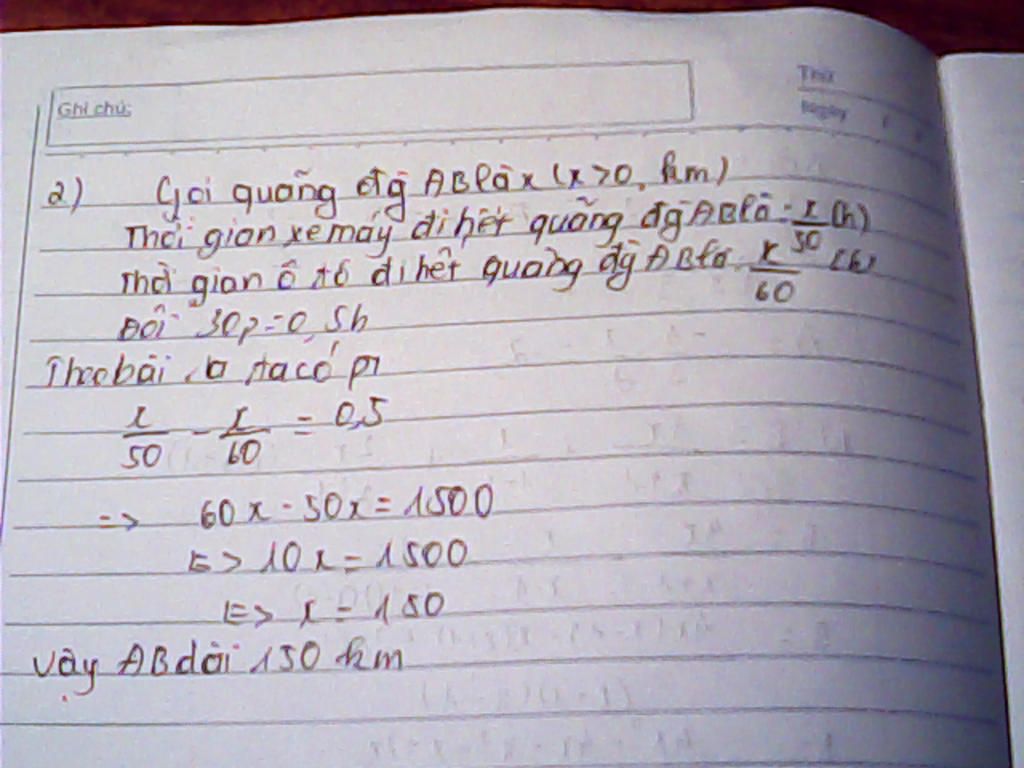 Ghi chú:
Thứ
Ngày
2) Gọi quãng đg AB là x (x>0, km)
Thời gian xe máy đi hết quãng đg AB là = x/50 (h)
Thời gian ô tô đi hết quãng đg AB là x/60 (h)
Đổi 30p=0,5h
Theo bài ra ta có pt
x/50 - x/60 = 0,5
=> 60x - 50x = 1500
<=> 10x = 1500
<=> x = 150
Vậy AB dài 150 km